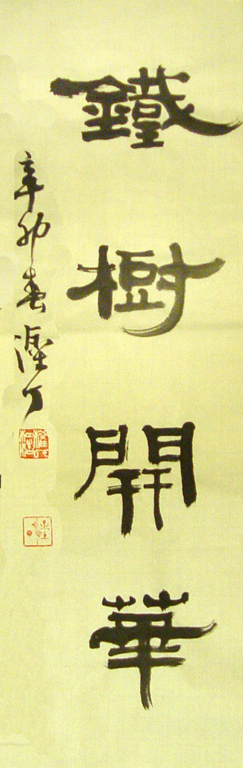 鐵樹開華
辛卯春